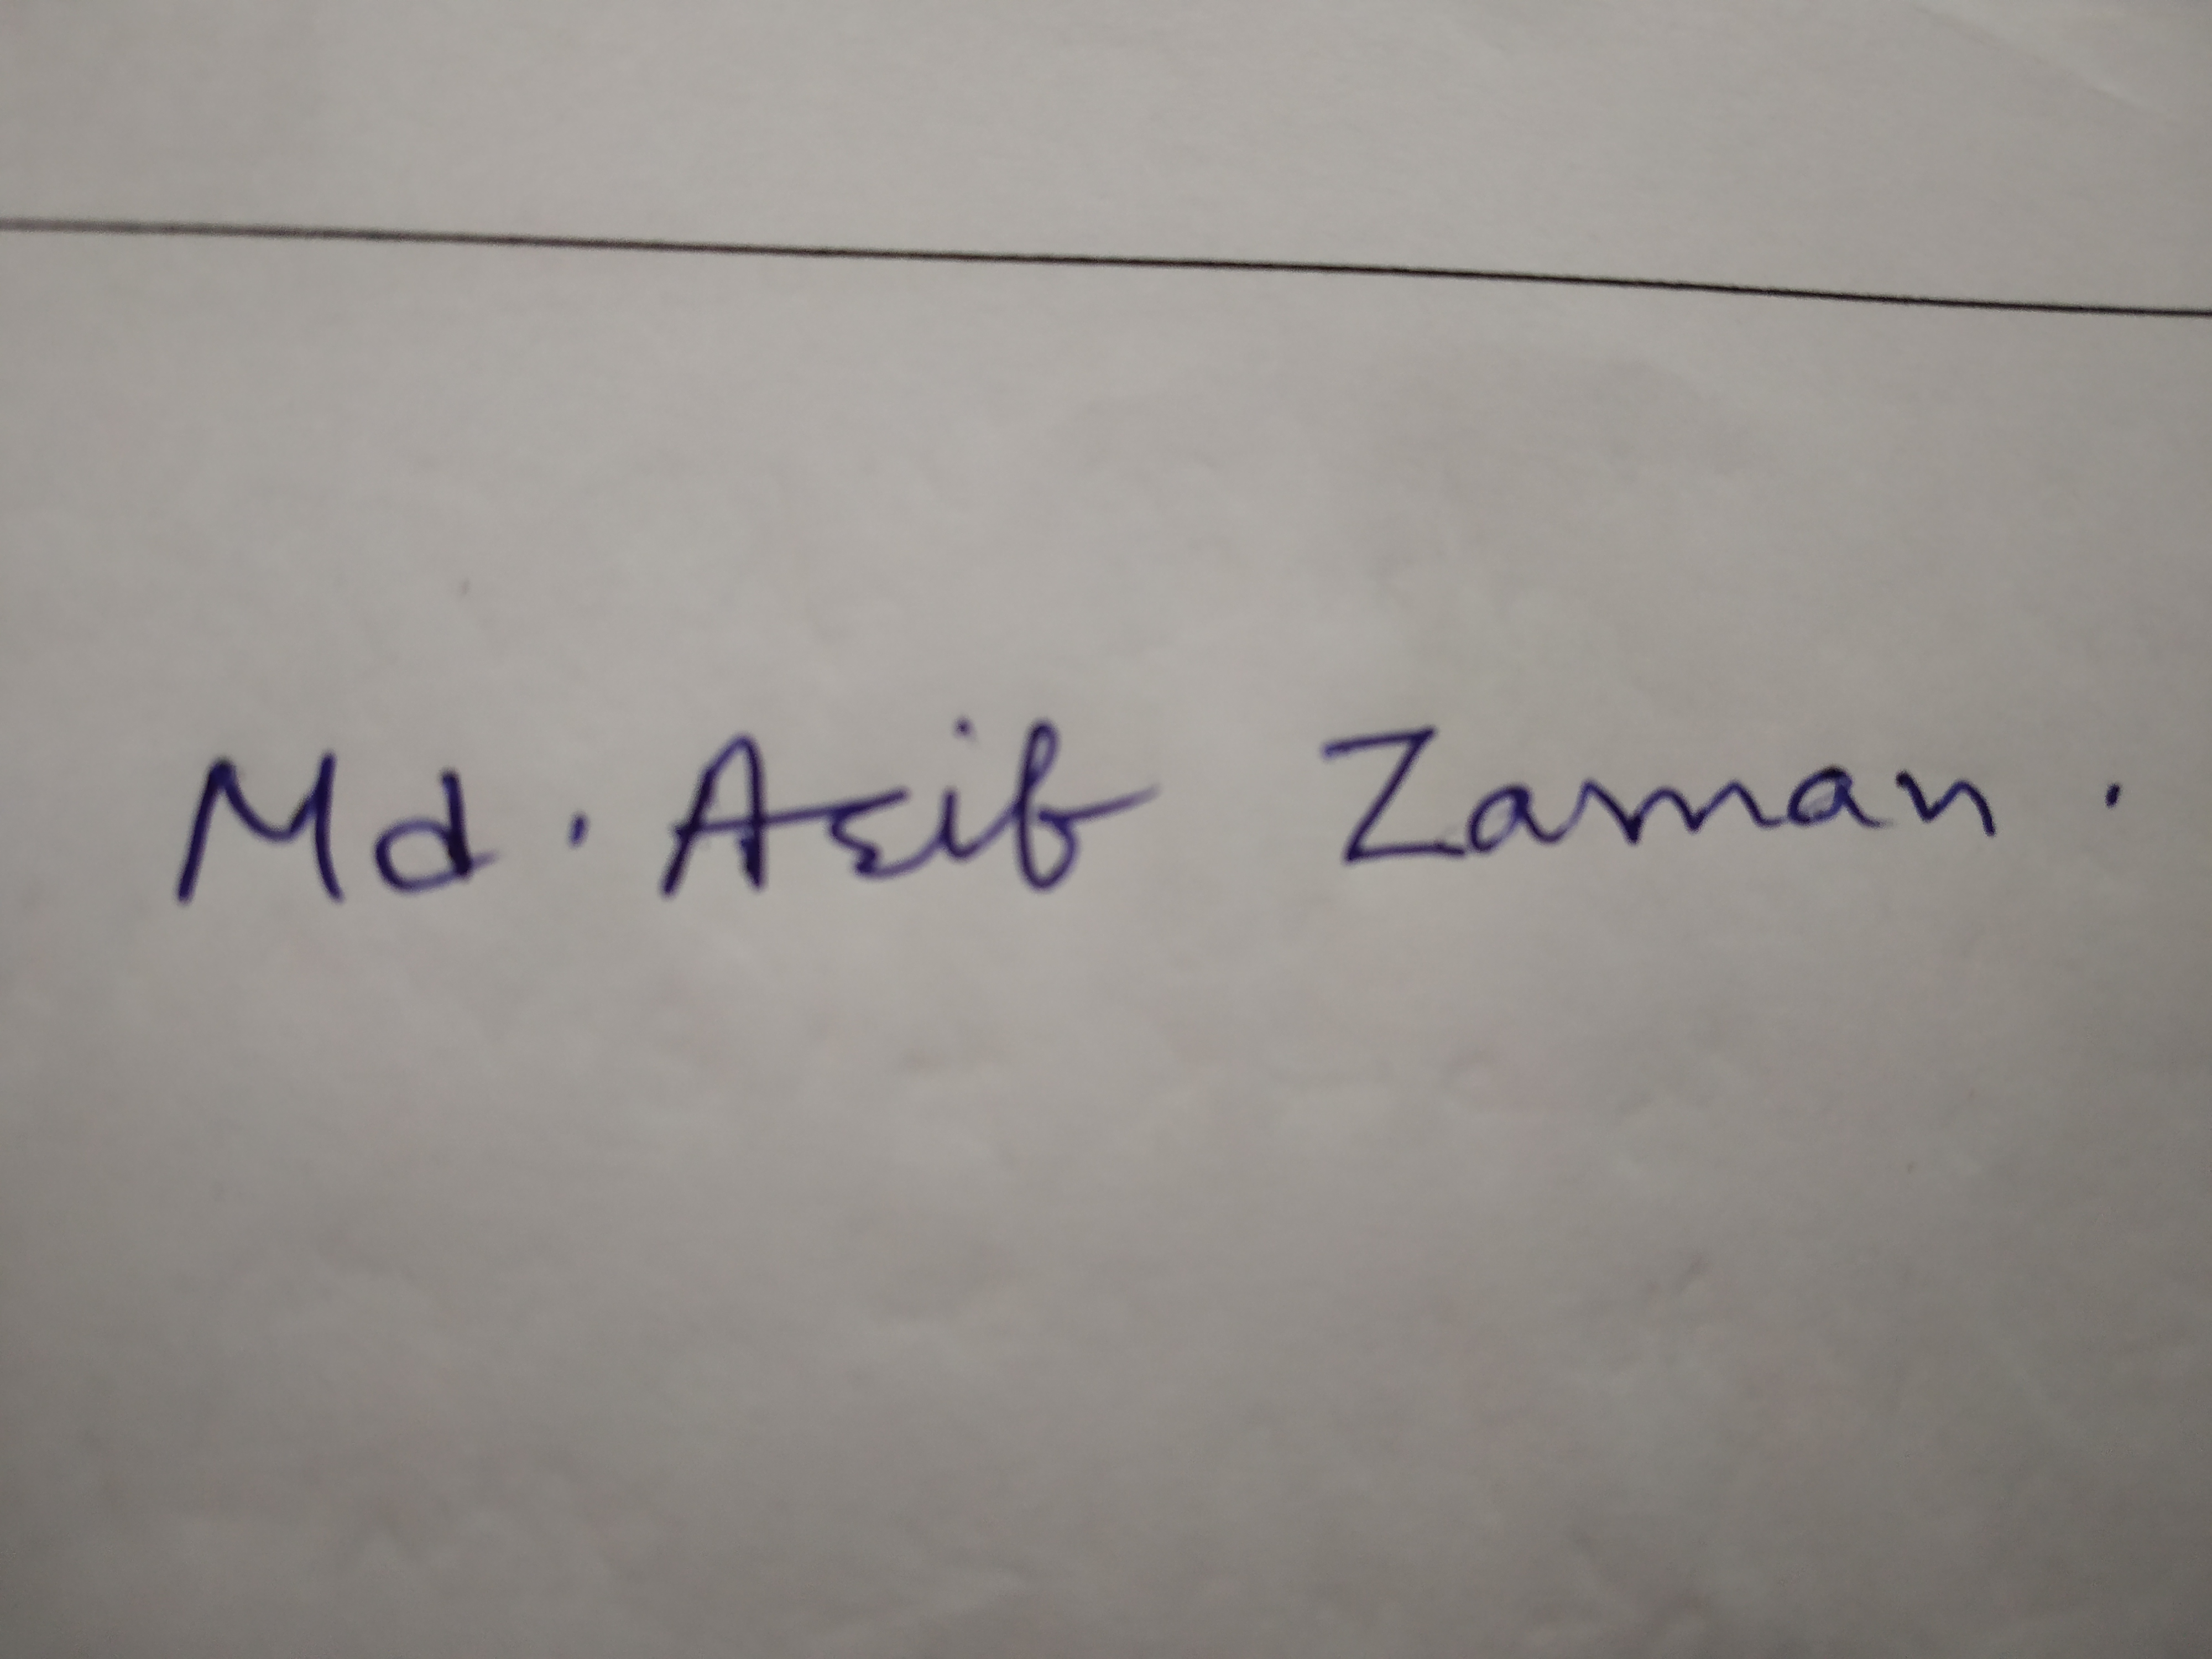 Md. Asif Zaman.